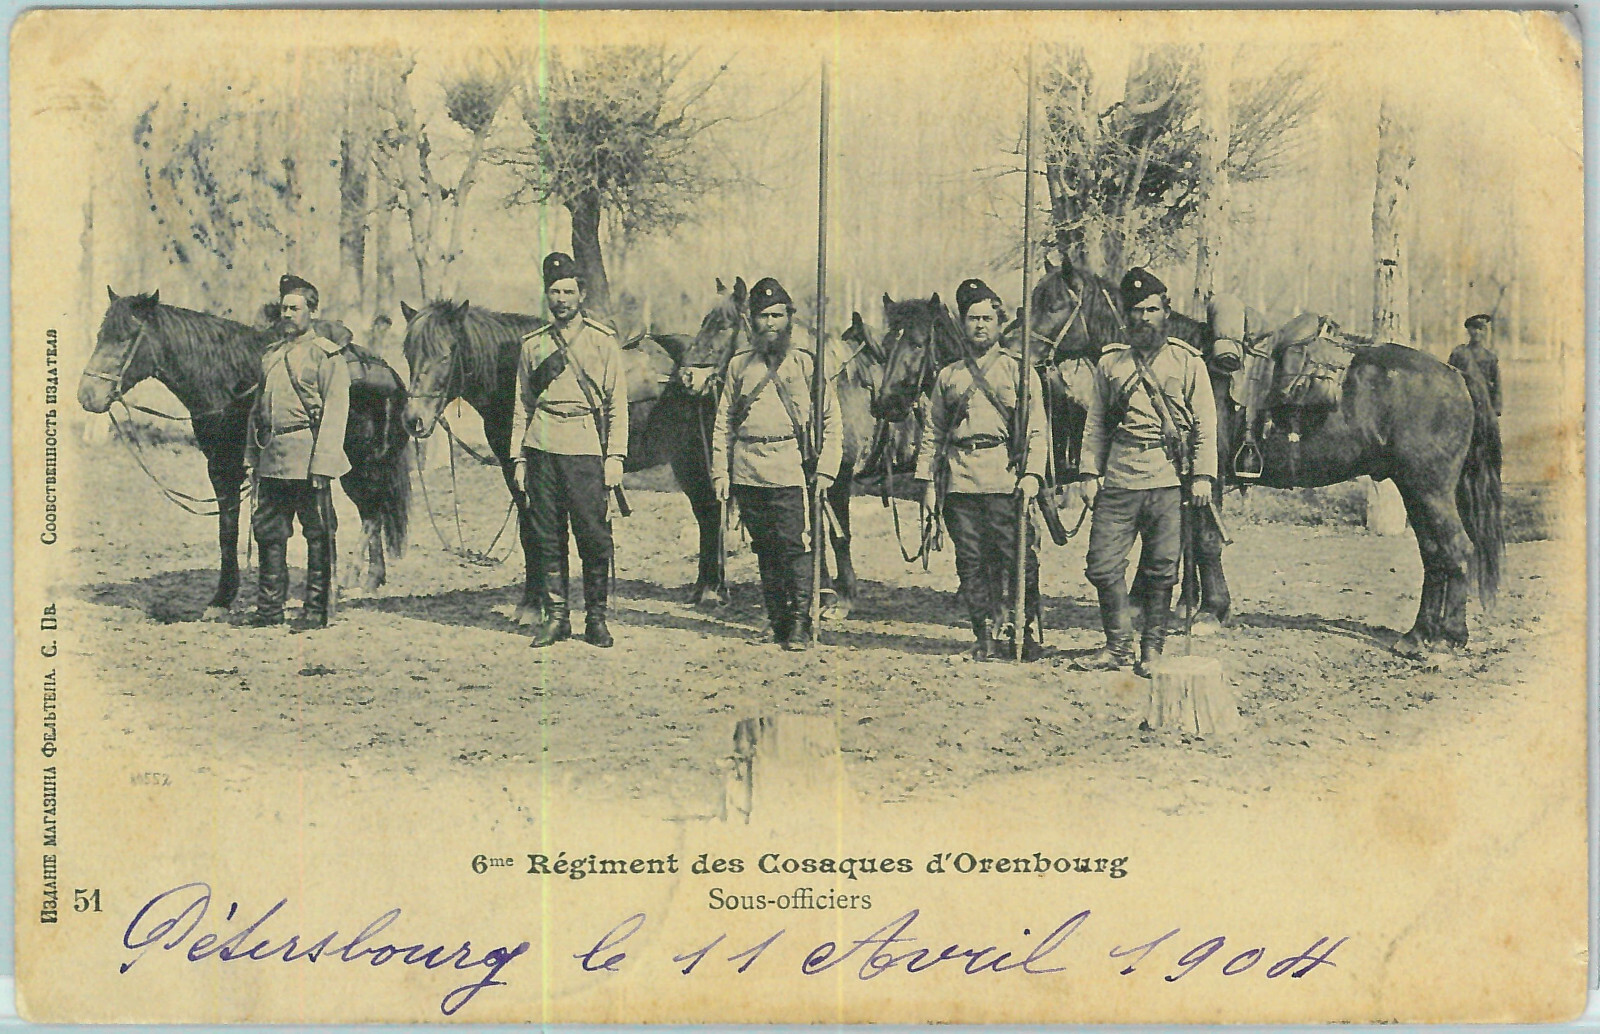 Издание магазина Фельтена. С. Пб. Сообственность издателя
6me Régiment des Cosaques d'Orenbourg
Sous-officiers
51
Pétersbourg le 11 Avril 1904